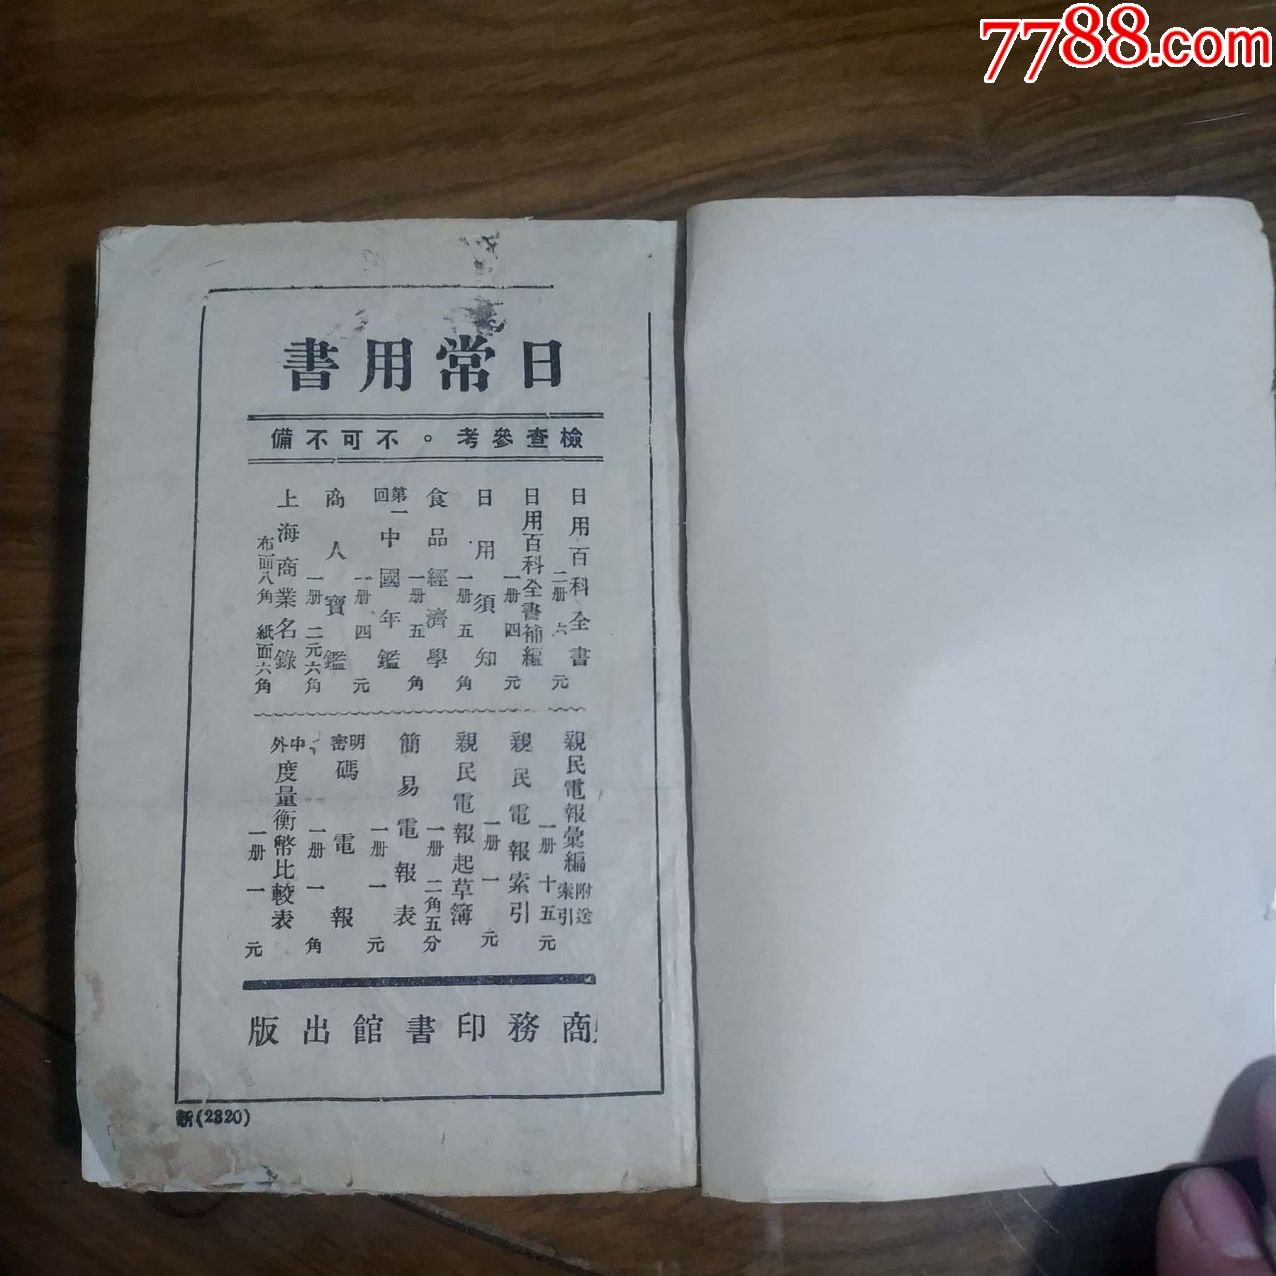 7788.com
日常用書
檢查參考。不可不備
日用百科全書 二册 六元
日用百科全書補編 一册 四元
日用須知 一册 五角
食品經濟學 一册 五角
第一回中國年鑑 一册 四元
商人寶鑑 一册 二元六角
上海商業名錄 布面八角 紙面六角
親民電報彙編 附送索引 一册 十五元
親民電報索引 一册 一元
親民電報起草簿 一册 二角五分
簡易電報表 一册 一元
明密碼電報 一册 一角
中外度量衡幣比較表 一册 一元
商務印書館出版
新(2320)